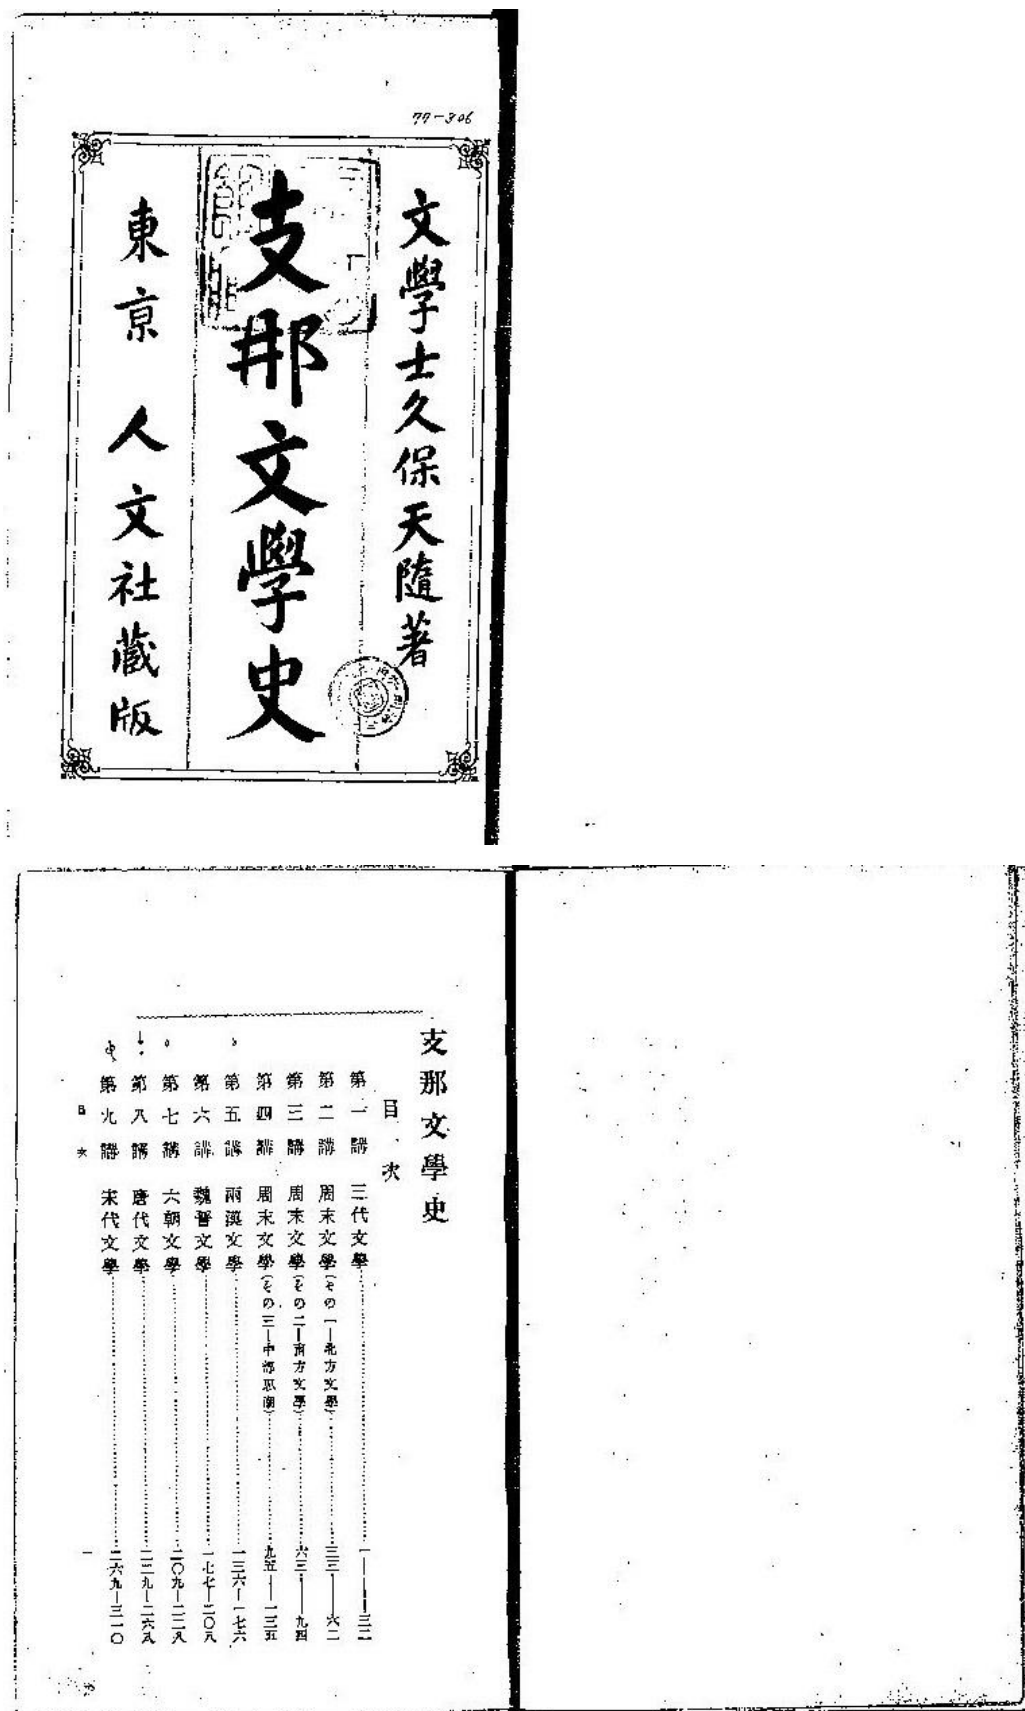 77-306
文學士久保天隨著
支那文學史
東京 人文社藏版
支那文學史
目次
第一講 三代文學……一——三二
第二講 周末文學(その一—北方文學)……三三——六二
第三講 周末文學(その二—南方文學)……六三——九四
第四講 周末文學(その三—中部思潮)……九五——一三五
第五講 兩漢文學……一三六—一七六
第六講 魏晉文學……一七七—二〇八
第七講 六朝文學……二〇九—二二八
第八講 唐代文學……二二九—二六八
第九講 宋代文學……二六九—三一〇
目次
一